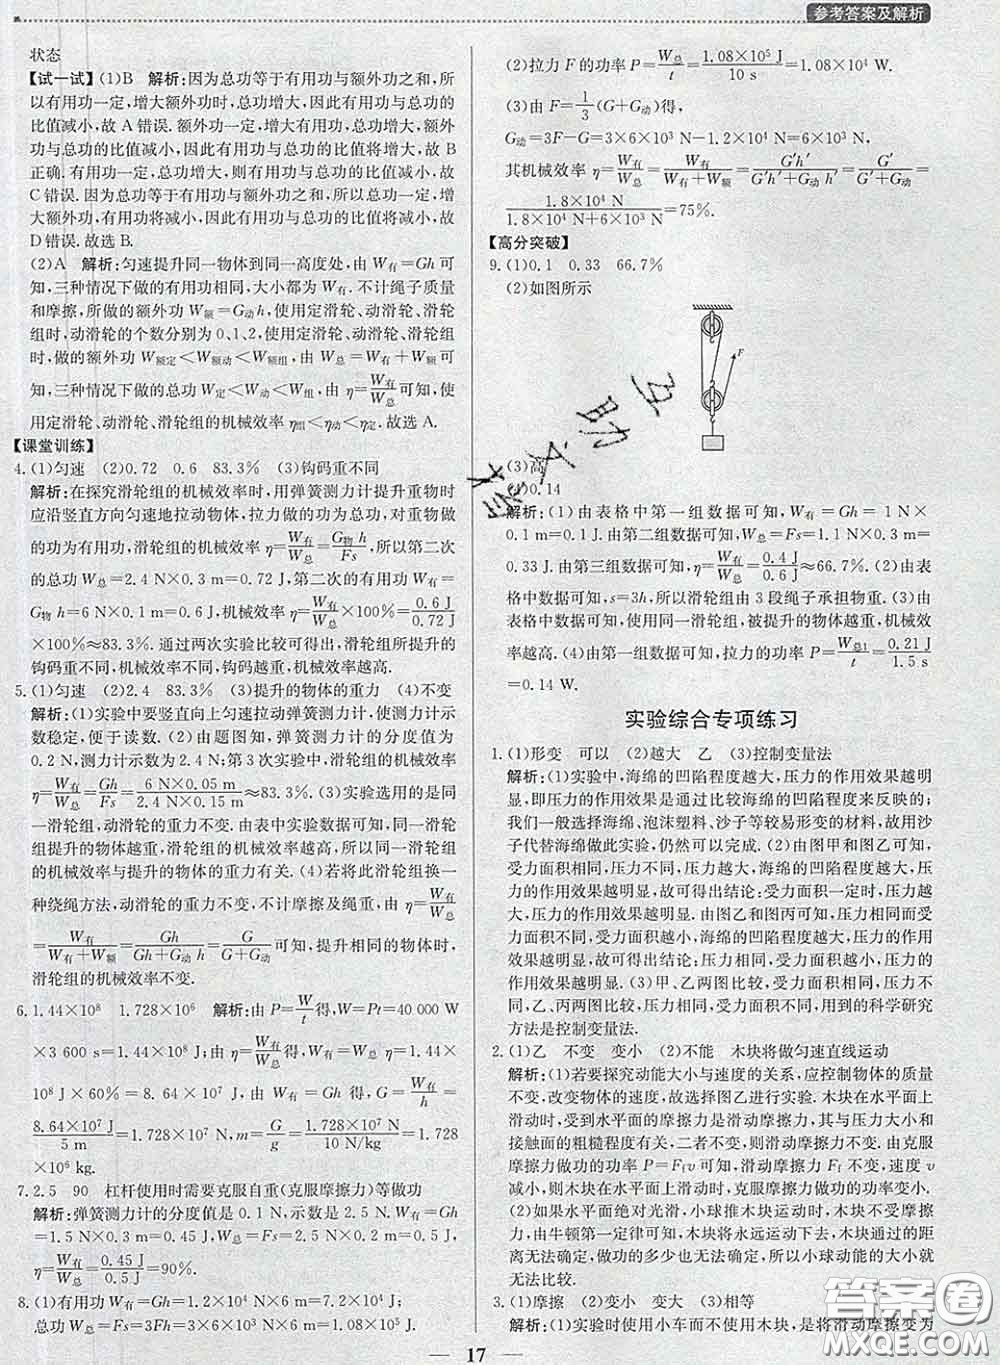 参考答案及解析
状态
【试一试】(1)B 解析:因为总功等于有用功与额外功之和,所
以有用功一定,增大额外功时,总功增大,因此有用功与总功的
比值减小,故 A 错误.额外功一定,增大有用功,总功增大,额外
功与总功的比值减小,因此有用功与总功的比值将增大,故 B
正确.有用功一定,增大总功,则有用功与总功的比值减小,故
C 错误.因为总功等于有用功与额外功之和,所以总功一定,增
大额外功,有用功将减小,因此有用功与总功的比值将减小,故
D 错误.故选 B.
(2)A 解析:匀速提升同一物体到同一高度处,由 W有=Gh可
知,三种情况下做的有用功相同,大小都为 W有.不计绳子质量
和摩擦,所做的额外功 W额=G动h,使用定滑轮、动滑轮、滑轮
组时,动滑轮的个数分别为 0、1、2,使用定滑轮、动滑轮、滑轮组
时,做的额外功 W额定<W额动<W额组,由 W总=W有+W额可
知,三种情况下做的总功 W总定<W总动<W总组,由 η=W有/W总可知,使
用定滑轮、动滑轮、滑轮组的机械效率 η组<η动<η定.故选 A.
【课堂训练】
4.(1)匀速 (2)0.72 0.6 83.3% (3)钩码重不同
解析:在探究滑轮组的机械效率时,用弹簧测力计提升重物时
应沿竖直方向匀速地拉动物体,拉力做的功为总功,对重物做
的功为有用功,滑轮组的机械效率 η=W有/W总=G物h/Fs,所以第二次
的总功 W总=2.4 N×0.3 m=0.72 J,第二次的有用功 W有=
G物h=6 N×0.1 m=0.6 J,机械效率 η=W有/W总×100%=0.6 J/0.72 J
×100%≈83.3%.通过两次实验比较可得出,滑轮组所提升的
钩码重不同,机械效率不同,钩码越重,机械效率越高.
5.(1)匀速 (2)2.4 83.3% (3)提升的物体的重力 (4)不变
解析:(1)实验中要竖直向上匀速拉动弹簧测力计,使测力计示
数稳定,便于读数.(2)由题图知,弹簧测力计的分度值为
0.2 N,测力计示数为 2.4 N;第 3 次实验中滑轮组的机械效率
η=W有/W总=Gh/Fs=6 N×0.05 m/2.4 N×0.15 m≈83.3%.(3)实验选用的是同
一滑轮组,动滑轮的重力不变.由表中实验数据可知,同一滑轮
组提升的物体越重,滑轮组的机械效率越高,所以同一滑轮组
的机械效率与提升的物体的重力有关.(4)若将此滑轮组换一
种绕绳方法,动滑轮的重力不变,不计摩擦及绳重,由 η=W有/W总
=W有/W有+W额=Gh/Gh+G动h=G/G+G动可知,提升相同的物体时,
滑轮组的机械效率不变.
6.1.44×10⁸ 1.728×10⁶ 解析:由 P=W/t得,W=Pt=40 000 W
×3 600 s=1.44×10⁸ J;由 η=W有/W总得,W有=W总η=1.44×
10⁸ J×60%=8.64×10⁷ J,由 W有=Gh 得,G=W有/h=
8.64×10⁷ J/5 m=1.728×10⁷ N,m=G/g=1.728×10⁷ N/10 N/kg=1.728
×10⁶ kg.
7.2.5 90 杠杆使用时需要克服自重(克服摩擦力)等做功
解析:弹簧测力计的分度值是 0.1 N,示数是 2.5 N.W有=Gh
=1.5 N×0.3 m=0.45 J,W总=Fs=2.5 N×0.2 m=0.5 J,
η=W有/W总=0.45 J/0.5 J=90%.
8.(1)有用功 W有=Gh=1.2×10⁴ N×6 m=7.2×10⁴ J;
总功 W总=Fs=3Fh=3×6×10³ N×6 m=1.08×10⁵ J.
(2)拉力 F 的功率 P=W总/t=1.08×10⁵ J/10 s=1.08×10⁴ W.
(3)由 F=1/3(G+G动)得,
G动=3F-G=3×6×10³ N-1.2×10⁴ N=6×10³ N,
其机械效率 η=W有/W总=W有/W有+W额=G′h′/G′h′+G动h′=G′/G′+G动=
1.8×10⁴ N/1.8×10⁴ N+6×10³ N=75%.
【高分突破】
9.(1)0.1 0.33 66.7%
(2)如图所示
F
(3)高
(4)0.14
解析:(1)由表格中第一组数据可知,W有=Gh=1 N×
0.1 m=0.1 J.由第二组数据可知,W总=Fs=1.1 N×0.3 m=
0.33 J.由第三组数据可知,η=W有/W总=0.4 J/0.6 J≈66.7%.(2)由表
格中数据可知,s=3h,所以滑轮组由 3 段绳子承担物重.(3)由
表格中数据可知,使用同一滑轮组,被提升的物体越重,机械效
率越高.(4)由第一组数据可知,拉力的功率 P=W总1/t=0.21 J/1.5 s
=0.14 W.
实验综合专项练习
1.(1)形变 可以 (2)越大 乙 (3)控制变量法
解析:(1)实验中,海绵的凹陷程度越大,压力的作用效果越明
显,即压力的作用效果是通过比较海绵的凹陷程度来反映的;
我们一般选择海绵、泡沫塑料、沙子等较易形变的材料,故用沙
子代替海绵做此实验,仍然可以完成.(2)由图甲和图乙可知,
受力面积相同,压力不同,压力越大,海绵的凹陷程度越大,压力
的作用效果越明显,故可得出结论:受力面积一定时,压力越
大,压力的作用效果越明显.由图乙和图丙可知,压力相同而受
力面积不同,受力面积越小,海绵的凹陷程度越大,压力的作用
效果越明显,故可以得出结论:压力一定时,受力面积越小,压力
的作用效果越明显.(3)甲、乙两图比较,受力面积相同,压力不
同,乙、丙两图比较,压力相同,受力面积不同,用到的科学研究
方法是控制变量法.
2.(1)乙 不变 变小 (2)不能 木块将做匀速直线运动
解析:(1)若要探究动能大小与速度的关系,应控制物体的质量
不变,改变物体的速度,故选择图乙进行实验.木块在水平面上
滑动时,受到水平面的摩擦力是滑动摩擦力,其与压力大小和
接触面的粗糙程度有关,二者不变,则滑动摩擦力不变.由克服
摩擦力做功的功率 P=Ffv可知,滑动摩擦力不变,速度 v
减小,则木块在水平面上滑动时,克服摩擦力做功的功率变小.
(2)如果水平面绝对光滑,小球推木块运动时,木块将不受摩擦
力,由牛顿第一定律可知,木块将永远运动下去,木块通过的距
离无法确定,做功的多少也无法确定,所以小球动能的大小就
无法比较.
3.(1)摩擦 (2)变小 变大 (3)相等
解析:(1)实验时使用小车而不使用木块,是将滑动摩擦变为
17
答案圈
MXQE.COM